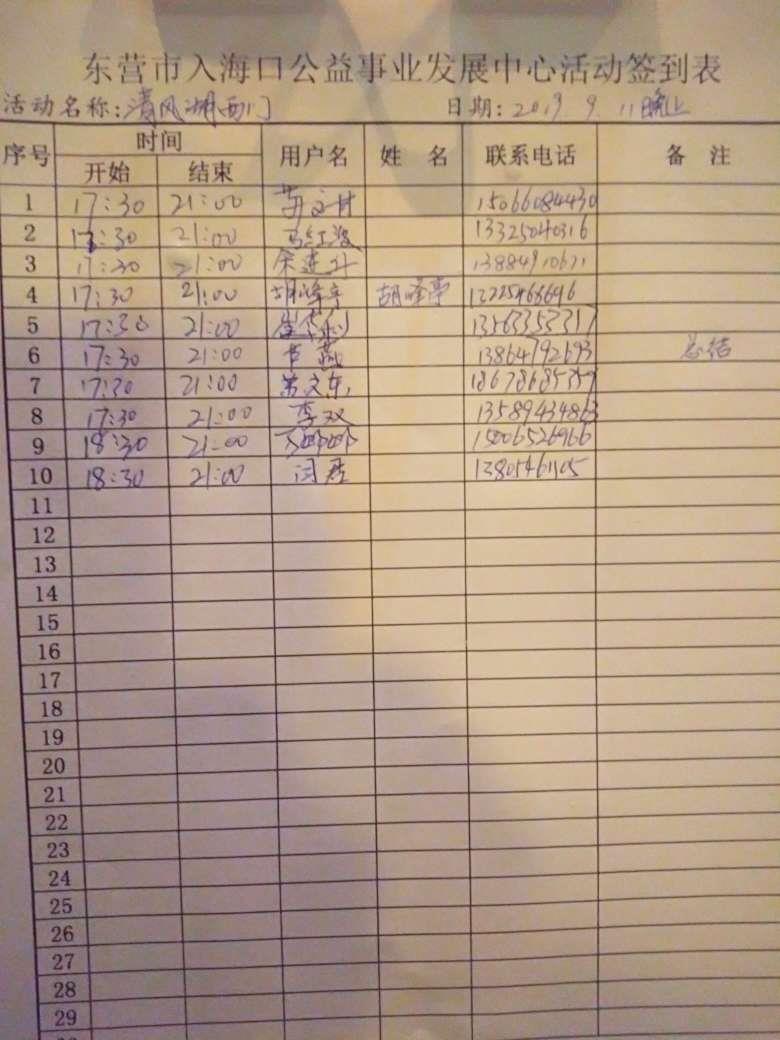 东营市入海口公益事业发展中心活动签到表
活动名称：清风湖西门 日期：2019.9.11晚上
序号 时间 用户名 姓 名 联系电话 备 注
开始 结束
1 17:30 21:00 15066084430
2 17:30 21:00 马红波 13325040316
3 17:30 21:00 余进升
4 17:30 21:00 胡峰亭 胡峰亭 13225466646
5 17:30 21:00 13563353317
6 17:30 21:00 13864792693 总结
7 17:30 21:00 18678685759
8 17:30 21:00 李双 13589434863
9 18:30 21:00 15006526966
10 18:30 21:00 闫君 13805461105
11
12
13
14
15
16
17
18
19
20
21
22
23
24
25
26
27
28
29